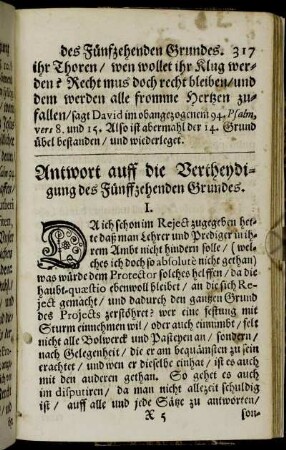 des Fünfzehenden Grundes. 317
ihr Thoren / wen wollet ihr Klug wer-
den? Recht mus doch recht bleiben/und
dem werden alle fromme Hertzen zu-
fallen/ sagt David im obangezogenem 94. Psalm,
vers 8. und 15. Also ist abermahl der 14. Grund
übel bestanden / und wiederleget.
Antwort auff die Vertheydi-
gung des Fünffzehenden Grundes.
I.
DA ich schon im Reject zugegeben het-
te daß man Lehrer und Prediger in ih-
rem Ambt nicht hindern solle / (wel-
ches ich doch so absolutè nicht gethan)
was würde dem Protector solches helffen / da die
haubt-quæstio ebenwoll bleibet / an die sich Re-
ject gemacht / und dadurch den gantzen Grund
des Projects zerstöhret? wer eine festung mit
Sturm einnehmen wil / oder auch einnimbt / felt
nicht alle Bolwerck und Pasteyen an / sondern /
nach Gelegenheit / die er am bequämsten zu sein
erachtet / und wen er dieselbe einhat / ist es auch
mit den anderen gethan. So gehet es auch
im disputiren / da man nicht allezeit schuldig
ist / auff alle und jede Sätze zu antworten /
X 5 son-